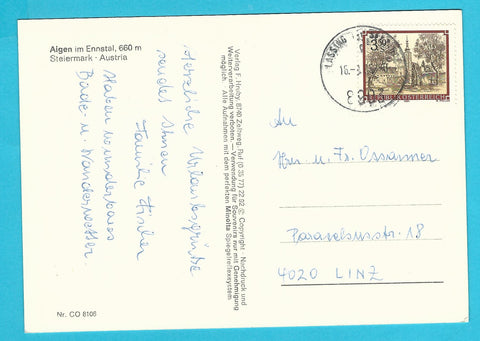 Aigen im Ennstal, 660 m
Steiermark - Austria
Herzliche Urlaubsgrüße
sendet Ihnen
Familie Fischer
Haben wunderbares
Bade- u. Wanderwetter.
Nr. CO 8106
Verlag F. Hruby, 8740 Zeltweg, Ruf (0 35 77) 22 92 © Copyright · Nachdruck und
Weiterverarbeitung verboten. — Verwendung für Souvenirs nur mit Genehmigung
möglich · Alle Aufnahmen mit dem perfekten Minolta Spiegelreflexsystem
LASSING
16.-
8903
3.50
REPUBLIK ÖSTERREICH
An
Hrn. u. Fr. Ossanner
Paracelsusstr. 18
4020 LINZ